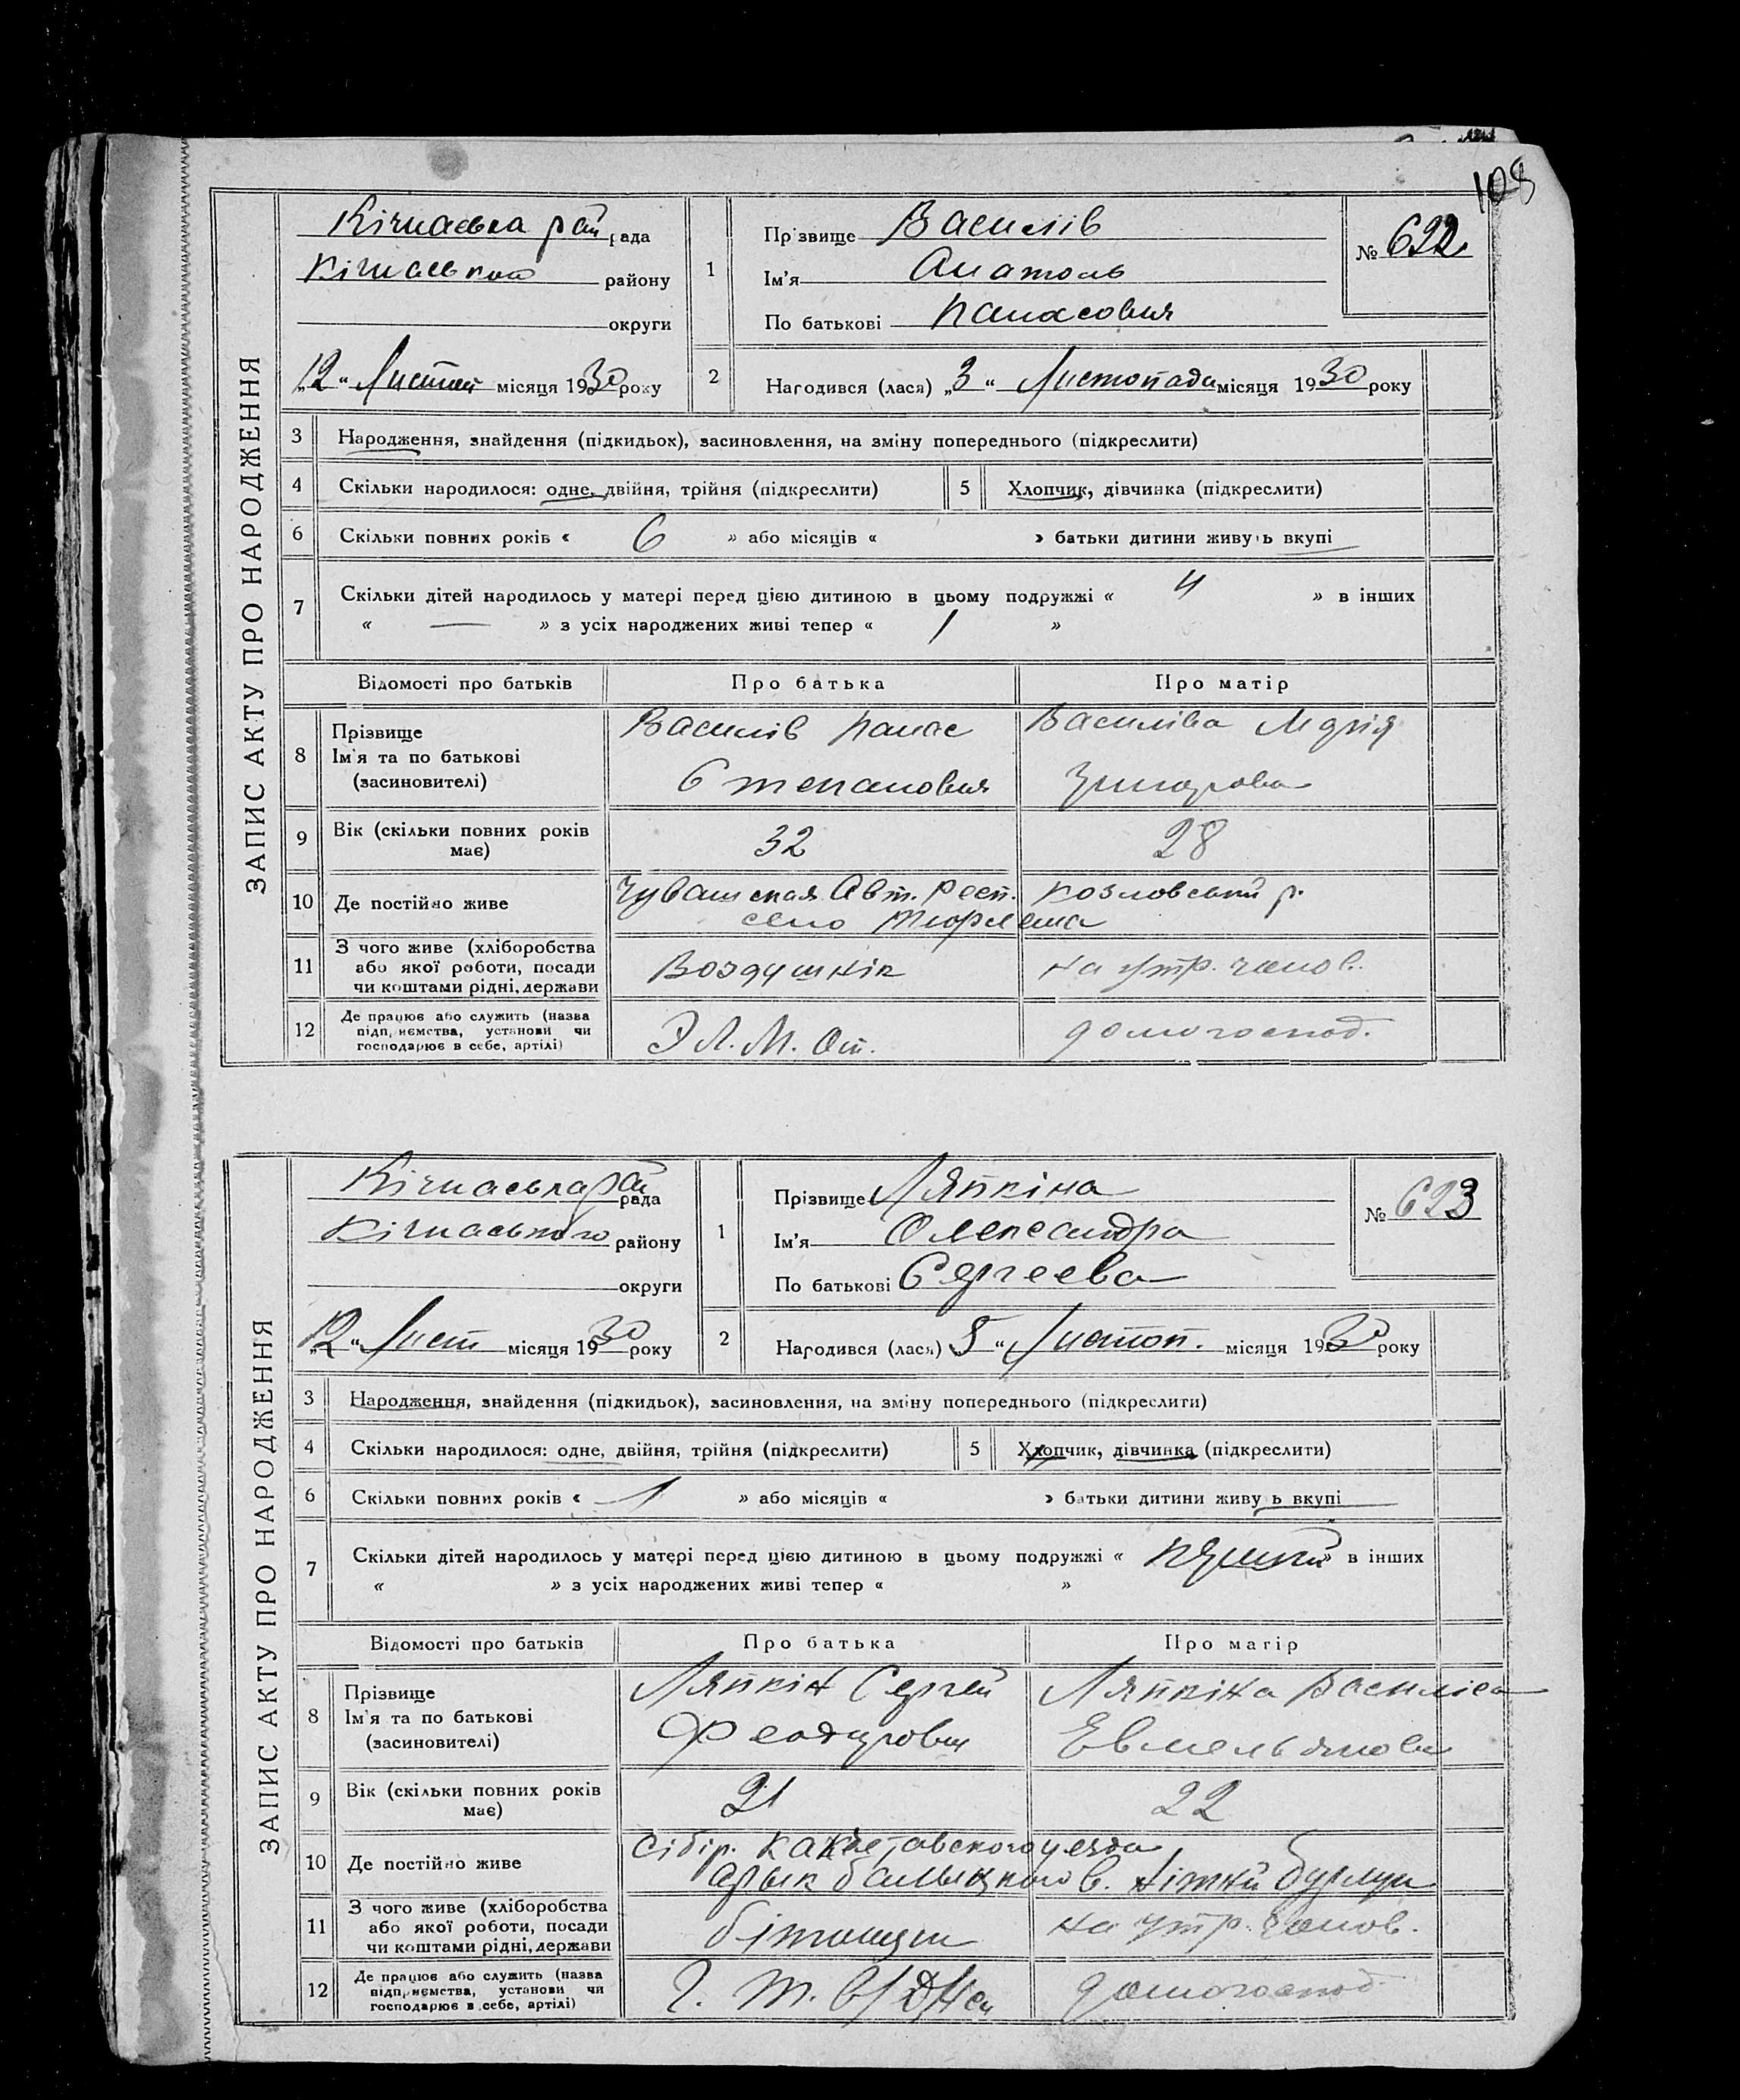 108
ЗАПИС АКТУ ПРО НАРОДЖЕННЯ
Кічкаська рай рада
Кічкаського району
округи
„12“ Листоп місяця 1930 року
1
Прізвище Василів
Ім'я Анатоль
По батькові Панасович
№ 622
2
Народився (лася) „3“ Листопада місяця 1930 року
3 Народження, знайдення (підкидьок), засиновлення, на зміну попереднього (підкреслити)
4 Скільки народилося: одне, двійня, трійня (підкреслити) 5 Хлопчик, дівчинка (підкреслити)
6 Скільки повних років « 6 » або місяців « » батьки дитини живуть вкупі
7 Скільки дітей народилось у матері перед цією дитиною в цьому подружжі « 4 » в інших
« — » з усіх народжених живі тепер « 1 »
Відомості про батьків Про батька Про матір
8 Прізвище
Ім'я та по батькові
(засиновителі)
Василів Панас
Степанович
Василіва Марія
9 Вік (скільки повних років
має)
32 28
10 Де постійно живе
Чувашская Авт. Респ. Козловський р.
село Тюрлема
11 З чого живе (хліборобства
або якої роботи, посади
чи коштами рідні, держави
Воздушнік на утр. чолов.
12 Де працює або служить (назва
підприємства, установи чи
господарює в себе, артілі)
домогоспод.
ЗАПИС АКТУ ПРО НАРОДЖЕННЯ
Кічкаська рай рада
Кічкаського району
округи
„12“ Лист місяця 1930 року
1
Прізвище Ляпкіна
Ім'я Олександра
По батькові Сергеева
№ 623
2
Народився (лася) 5 “ Листоп. місяця 1930 року
3 Народження, знайдення (підкидьок), засиновлення, на зміну попереднього (підкреслити)
4 Скільки народилося: одне, двійня, трійня (підкреслити) 5 Хлопчик, дівчинка (підкреслити)
6 Скільки повних років « 1 » або місяців « » батьки дитини живуть вкупі
7 Скільки дітей народилось у матері перед цією дитиною в цьому подружжі « » в інших
« » з усіх народжених живі тепер « »
Відомості про батьків Про батька Про матір
8 Прізвище
Ім'я та по батькові
(засиновителі)
Ляпкін Сергей
Феодурович
Ляпкіна Василіса
Евмельянова
9 Вік (скільки повних років
має)
21 22
10 Де постійно живе
Сібір. уезда
11 З чого живе (хліборобства
або якої роботи, посади
чи коштами рідні, держави
бітонщик на утр. чолов.
12 Де працює або служить (назва
підприємства, установи чи
господарює в себе, артілі)
домогоспод.